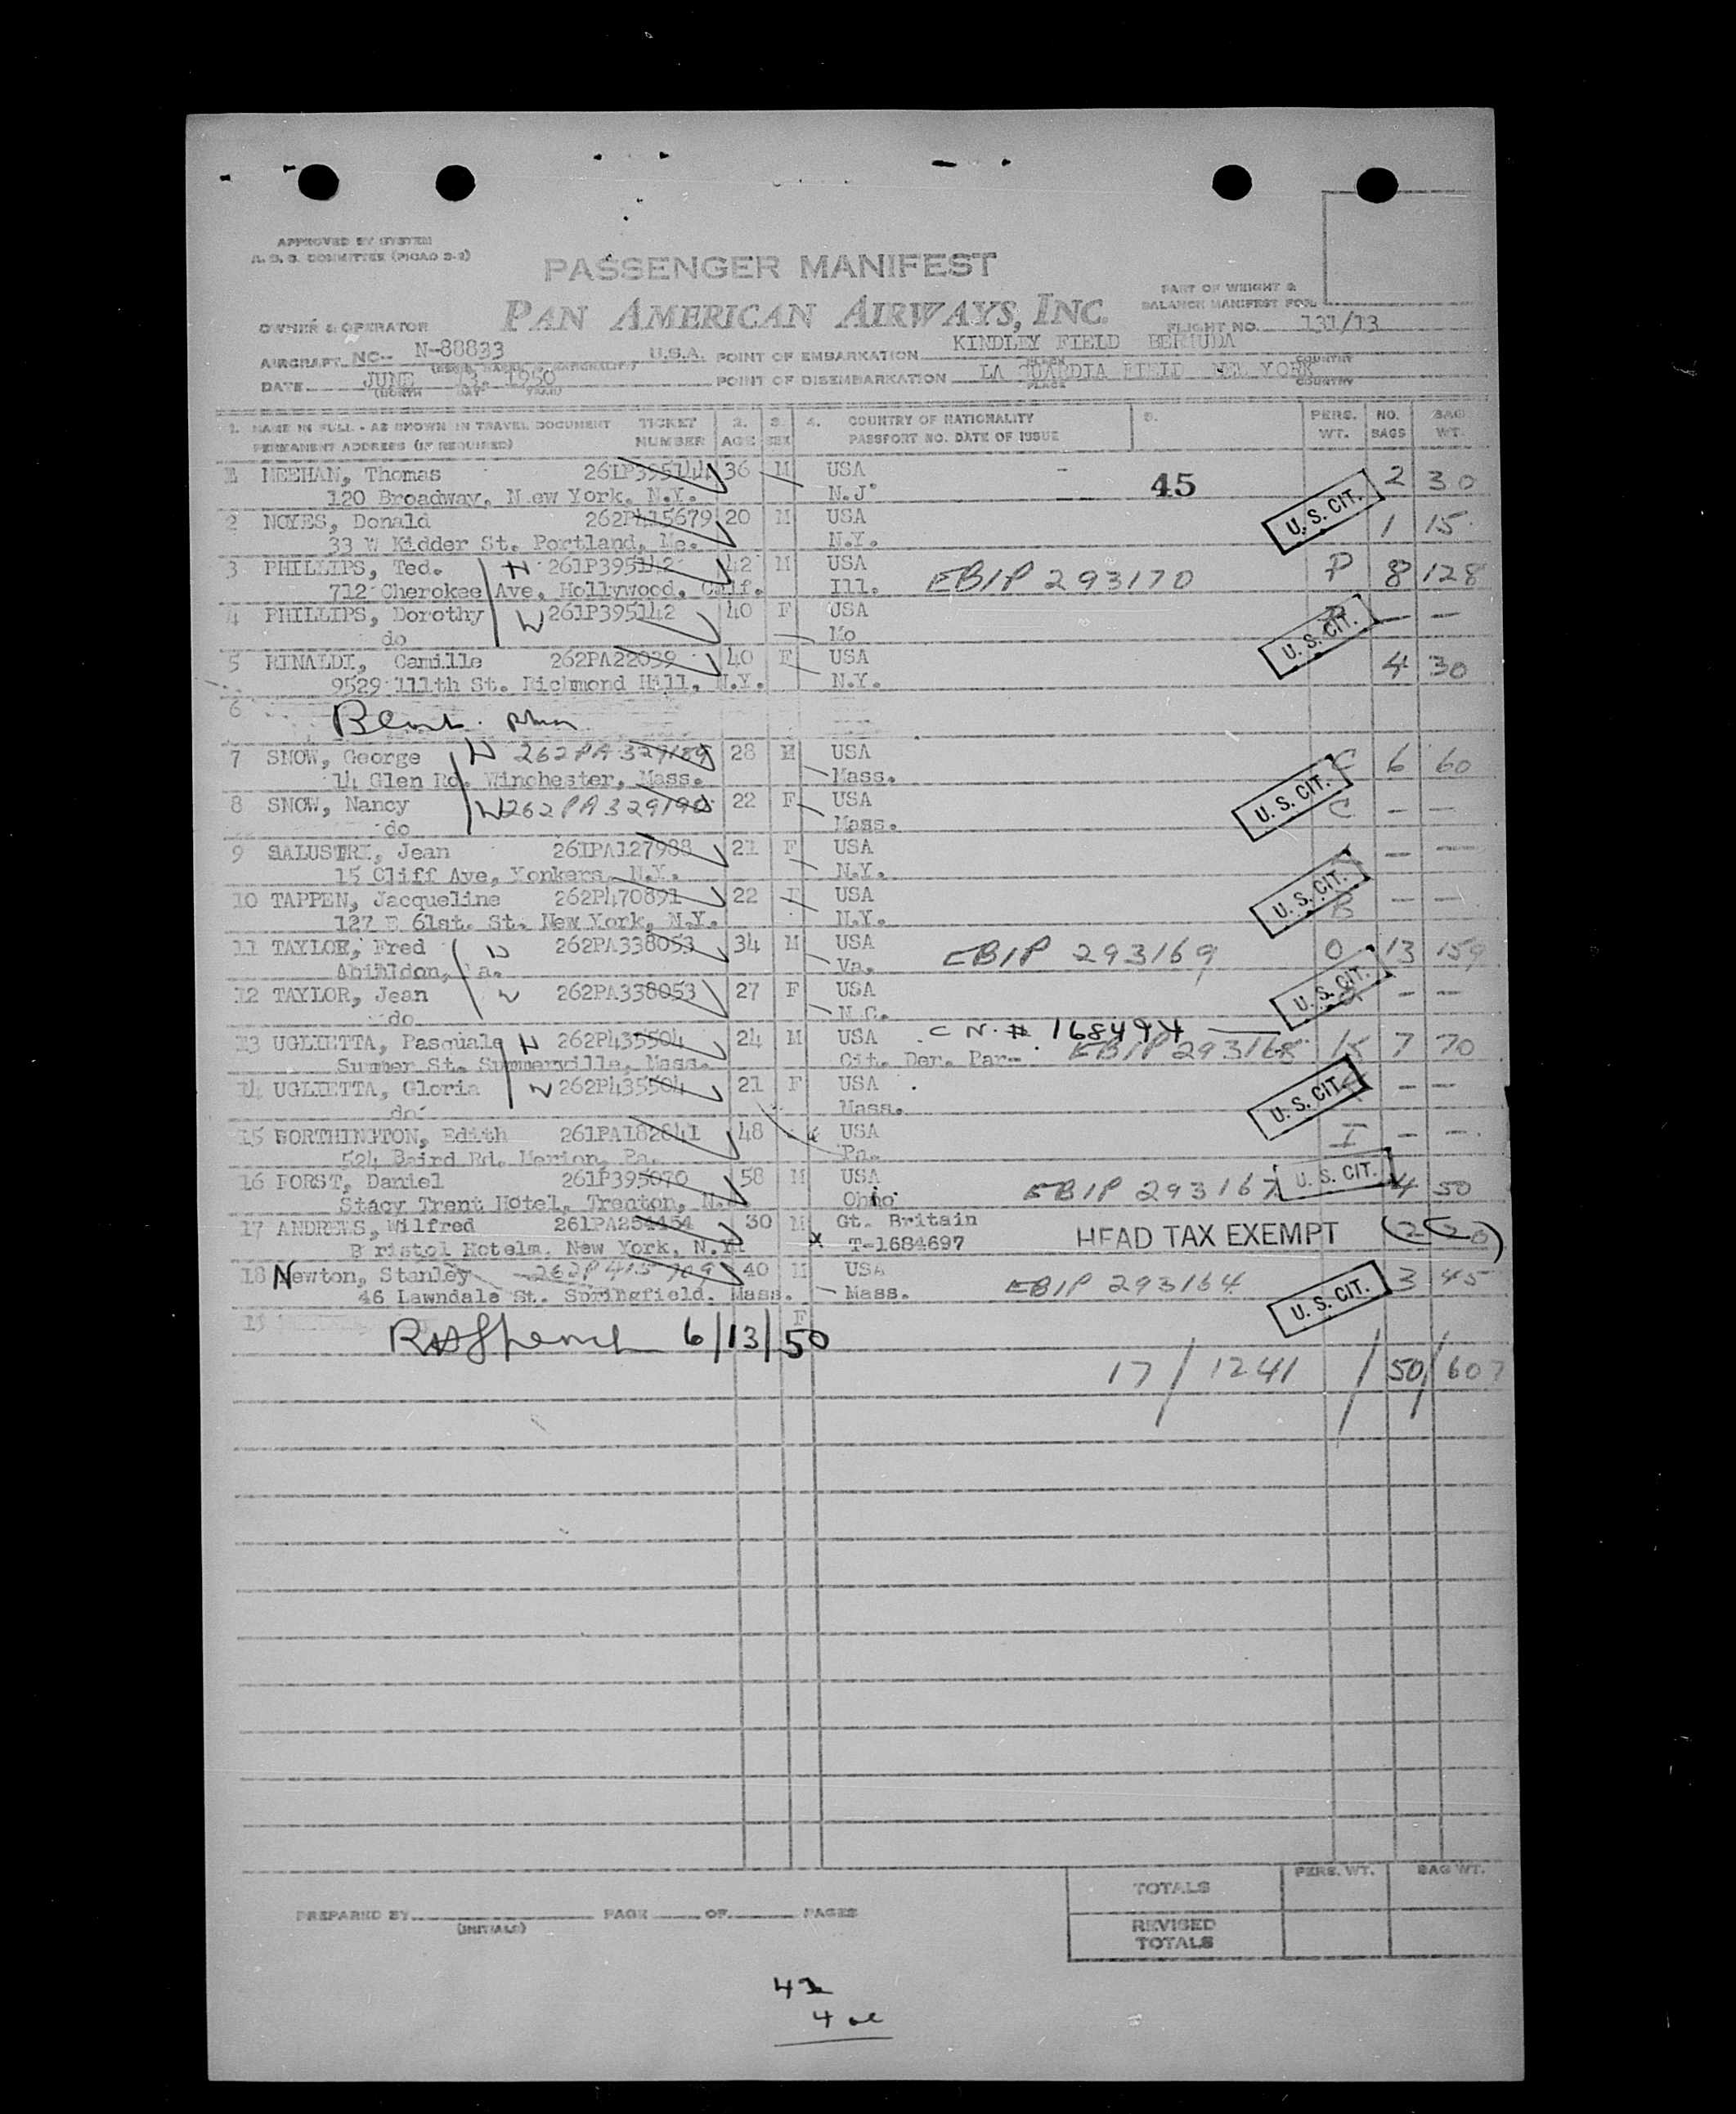 APPROVED BY SYSTEM
A. O. G. COMMITTEE (PICAO S-2)
PASSENGER MANIFEST
PAN AMERICAN AIRWAYS, INC.
PART OF WEIGHT &
BALANCE MANIFEST FOR
OWNER & OPERATOR
FLIGHT NO. 131/13
AIRCRAFT NC-- N-88833 U.S.A. POINT OF EMBARKATION KINDLEY FIELD BERMUDA
PLACE COUNTRY
DATE JUNE 13, 1950 POINT OF DISEMBARKATION LA GUARDIA FIELD NEW YORK
(MONTH DAY YEAR) PLACE COUNTRY
1. NAME IN FULL - AS SHOWN IN TRAVEL DOCUMENT TICKET 2. 3. 4. COUNTRY OF NATIONALITY 5. PERS. NO. BAG
PERMANENT ADDRESS (IF REQUIRED) NUMBER AGE SEX PASSPORT NO. DATE OF ISSUE WT. BAGS WT.
1 MEEHAN, Thomas 261P395144 36 M USA 2 30
120 Broadway, New York, N.Y. N.J. 45
U.S. CIT.
2 NOYES, Donald 262P415679 20 M USA 1 15
33 W Kidder St. Portland, Me. N.Y.
3 PHILLIPS, Ted. H 261P395142 42 M USA P 8 128
712 Cherokee Ave, Hollywood, Calif. Ill. EBIP 293170
4 PHILLIPS, Dorothy W 261P395142 40 F USA — —
do Mo
U.S. CIT.
5 RINALDI, Camille 262PA22039 40 F USA 4 30
9529 111th St. Richmond Hill, N.Y. N.Y.
6
7 SNOW, George H 262PA329189 28 M USA C 6 60
14 Glen Rd, Winchester, Mass. Mass.
U.S. CIT.
8 SNOW, Nancy W 262PA329190 22 F USA C — —
do Mass.
9 SALUSTRI, Jean 261PA127988 21 F USA — —
15 Cliff Ave, Yonkers, N.Y. N.Y.
U.S. CIT.
10 TAPPEN, Jacqueline 262P470891 22 F USA B — —
127 E 61st. St. New York, N.Y. N.Y.
11 TAYLOR, Fred W 262PA338053 34 M USA EBIP 293169 O 13 159
Va.
U.S. CIT.
12 TAYLOR, Jean W 262PA338053 27 F USA — —
do N.C.
13 UGLIETTA, Pasquale H 262P435504 24 M USA C N. # 168494
Sumner St. Summerville, Mass. Cit. Der. Par-- EBIP 293168 15 7 70
14 UGLIETTA, Gloria W 262P435504 21 F USA — —
do Mass.
U.S. CIT.
15 WORTHINGTON, Edith 261PA182841 48 USA I — —
524 Baird Rd. Merion, Pa. Pa.
16 DORST, Daniel 261P395070 58 M USA EBIP 293167 U.S. CIT. 4 50
Stacy Trent Hotel, Trenton, N.J. Ohio
17 ANDREWS, Wilfred 261PA254454 30 M Gt. Britain
Bristol Hotelm. New York, N.Y. X T-1684697 HEAD TAX EXEMPT
18 Newton, Stanley 262P415709 40 M USA EBIP 293164 3 45
46 Lawndale St. Springfield. Mass. Mass.
U.S. CIT.
19 F
6/13/50
17 / 1241 / 50 / 607
PERS. WT. BAG WT.
TOTALS
PREPARED BY PAGE OF PAGES
(INITIALS)
REVISED
TOTALS